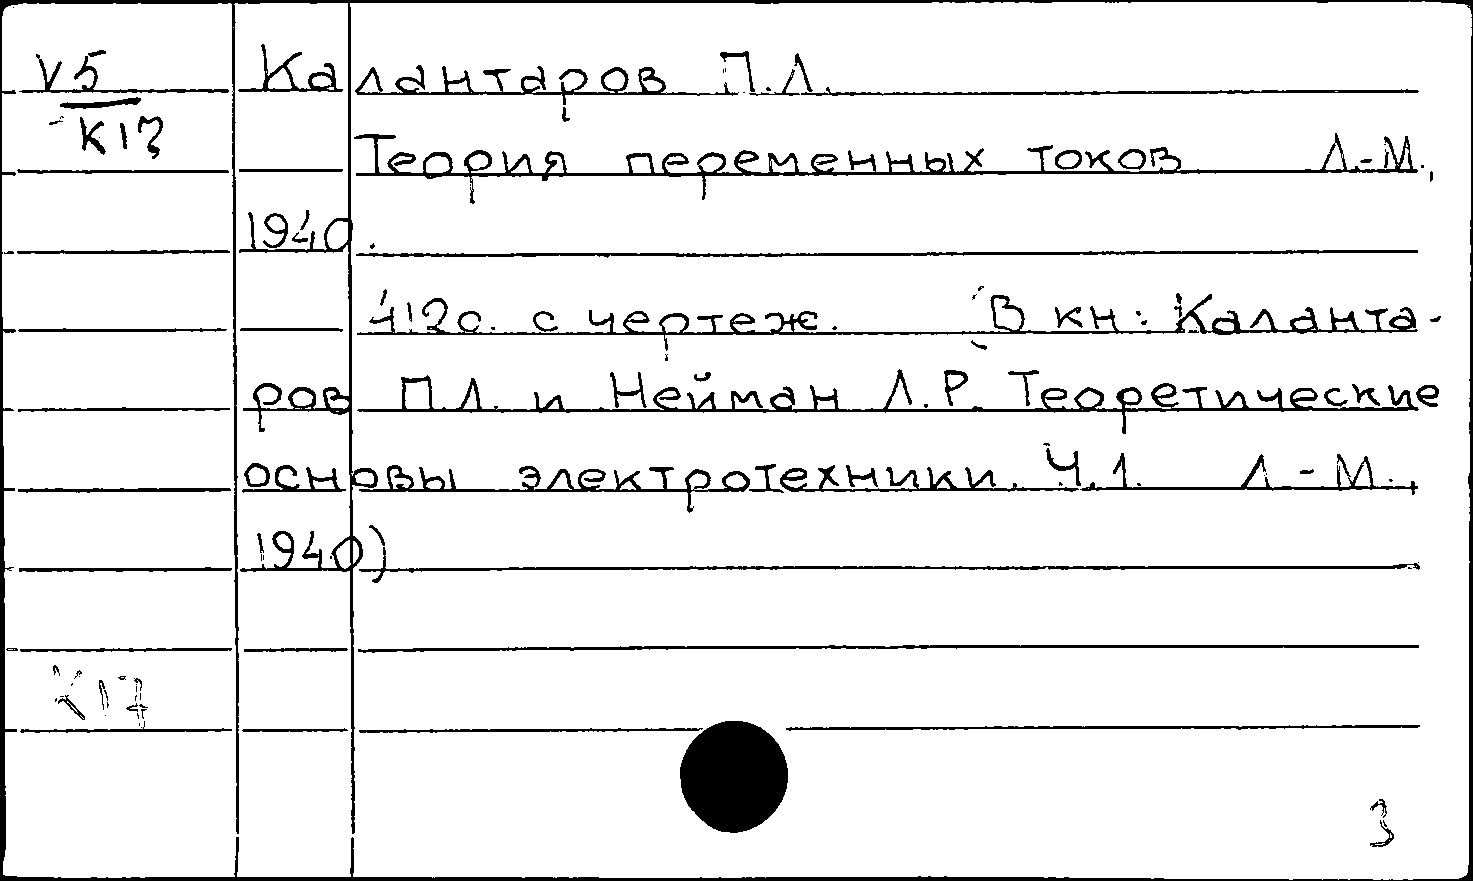 V5 Калантаров П.Л.
К17
Теория переменных токов Л.-М.,
1940.
412с. с чертеж. (В кн: Каланта-
ров П.Л. и Нейман Л.Р. Теоретические
основы электротехники. Ч.1. Л-М.,
1940)
К17
3